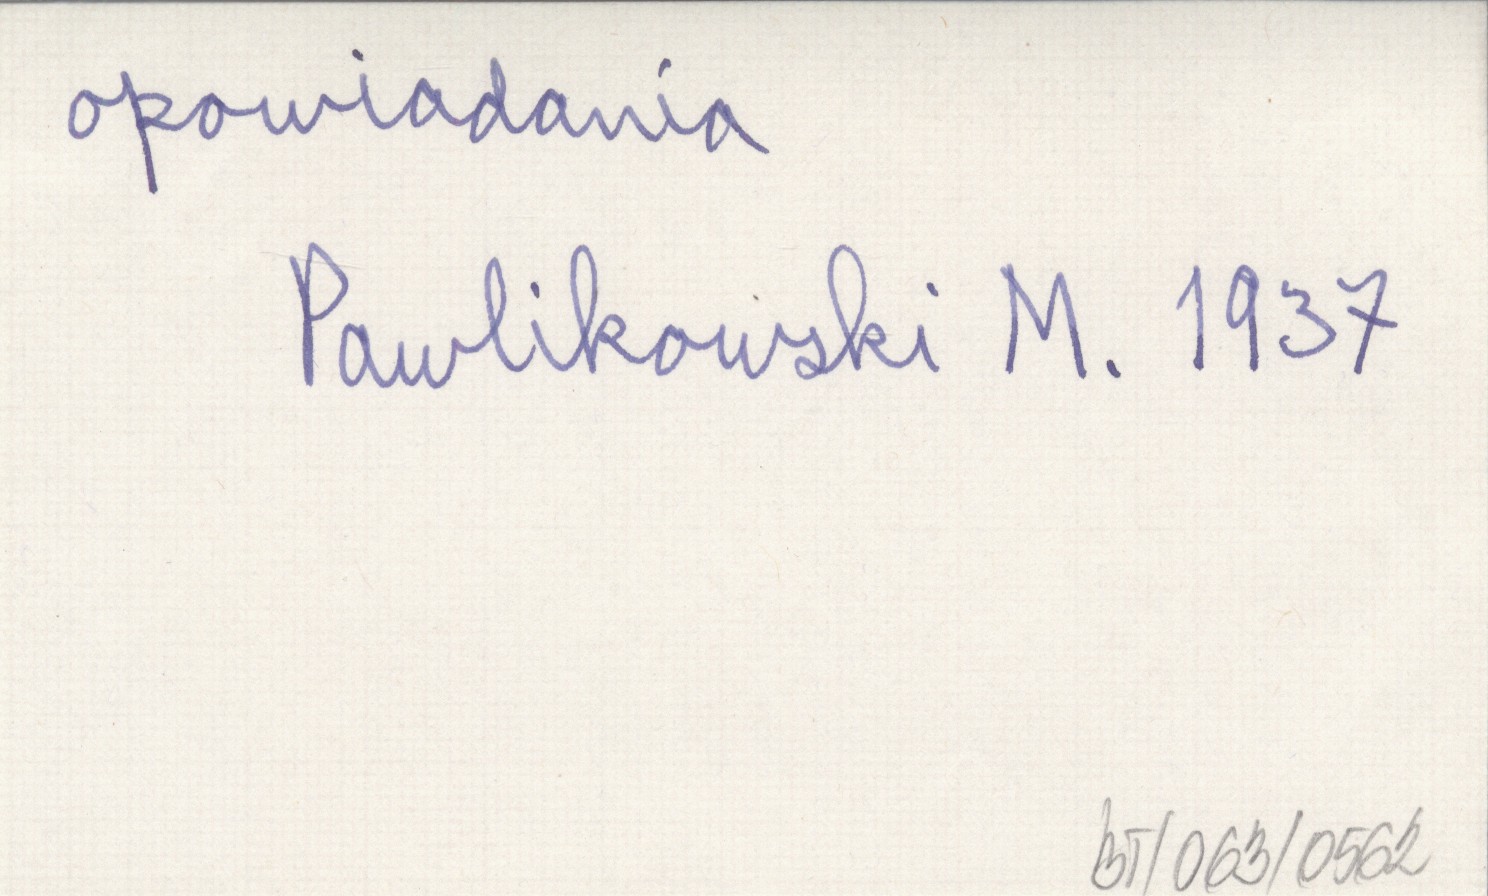 opowiadania
Pawlikowski M. 1937
BT/063/0562